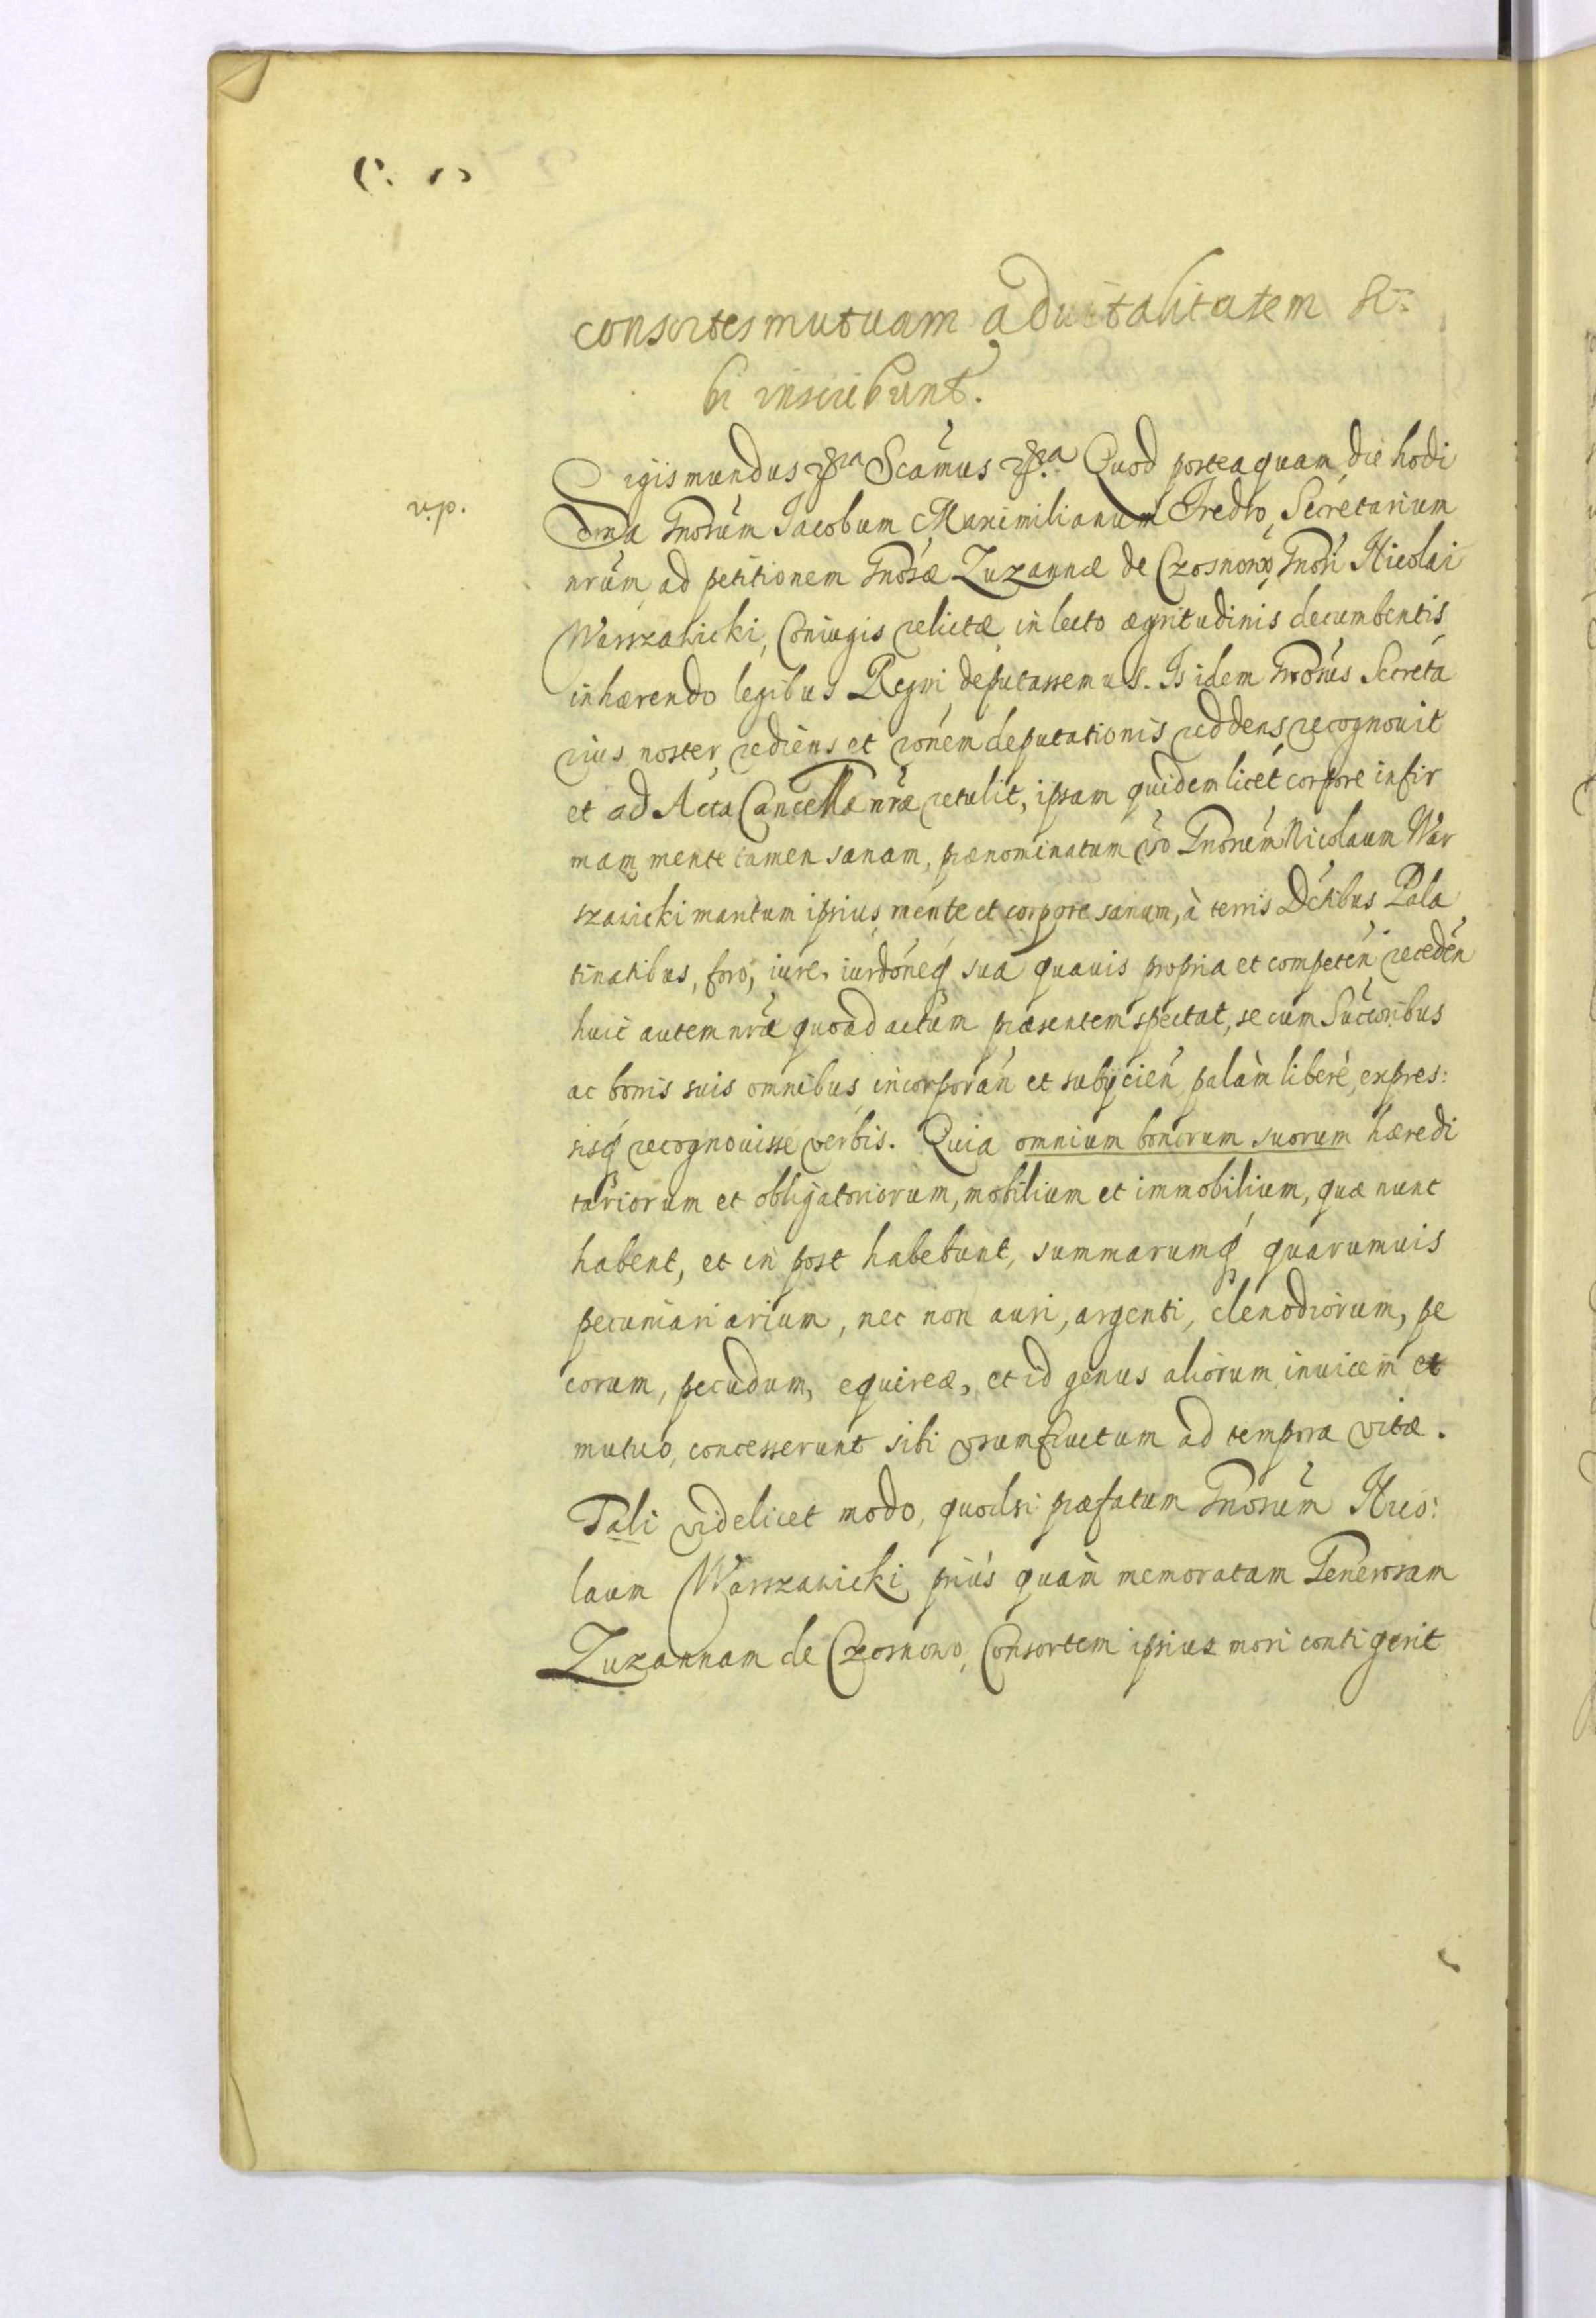 consortes mutuam aduitalitatem si
bi inscribunt.
Sigismundus &ra Scamus &ra Quod posteaquam die hodi
erna Gnosum Jacobum Maximilianum Fredro, Secretarium
nrum ad petitionem Gnosæ Zuzannæ de Czosnowo, Gnosi Nicolai
Warszawicki, Coniugis relictæ in lecto ægritudinis decumbentis
inhærendo legibus Regni deputassemus. Is idem Gnosus Secreta
rius noster rediens et ronem deputationis reddens recognouit
et ad Acta Cancellæ nræ retulit, ipsam quidem licet corpore infir
mam mente tamen sanam, prænominatum vo Gnosum Nicolaum War
szawicki maritum ipsius mente et corpore sanum, à terris Dctibus Pala
tinatibus, foro, iure, iurdoneq sua quauis propria et competen receden
huic autem nræ quoad actum præsentem spectat, se cum Succoribus
ac bonis suis omnibus incorporan et subijcien palàm liberè, expres:
sisq recognouisse verbis. Quia omnium bonorum suorum hæredi
tariorum et obligatoriorum, mobilium et immobilium, quæ nunc
habent, et in post habebunt, summarumq quarumuis
pecuniariarium, nec non auri, argenti, clenodiorum, pe
corum, pecudum, equireæ, et id genus aliorum inuicem et
mutuo, concesserunt sibi vsumfructum ad tempora vitæ.
Tali videlicet modo, quodsi præfatum Gnosum Nico:
laum Warszawicki priùs quàm memoratam Generosam
Zuzannam de Czosnowo, Consortem ipsius mori contigerit